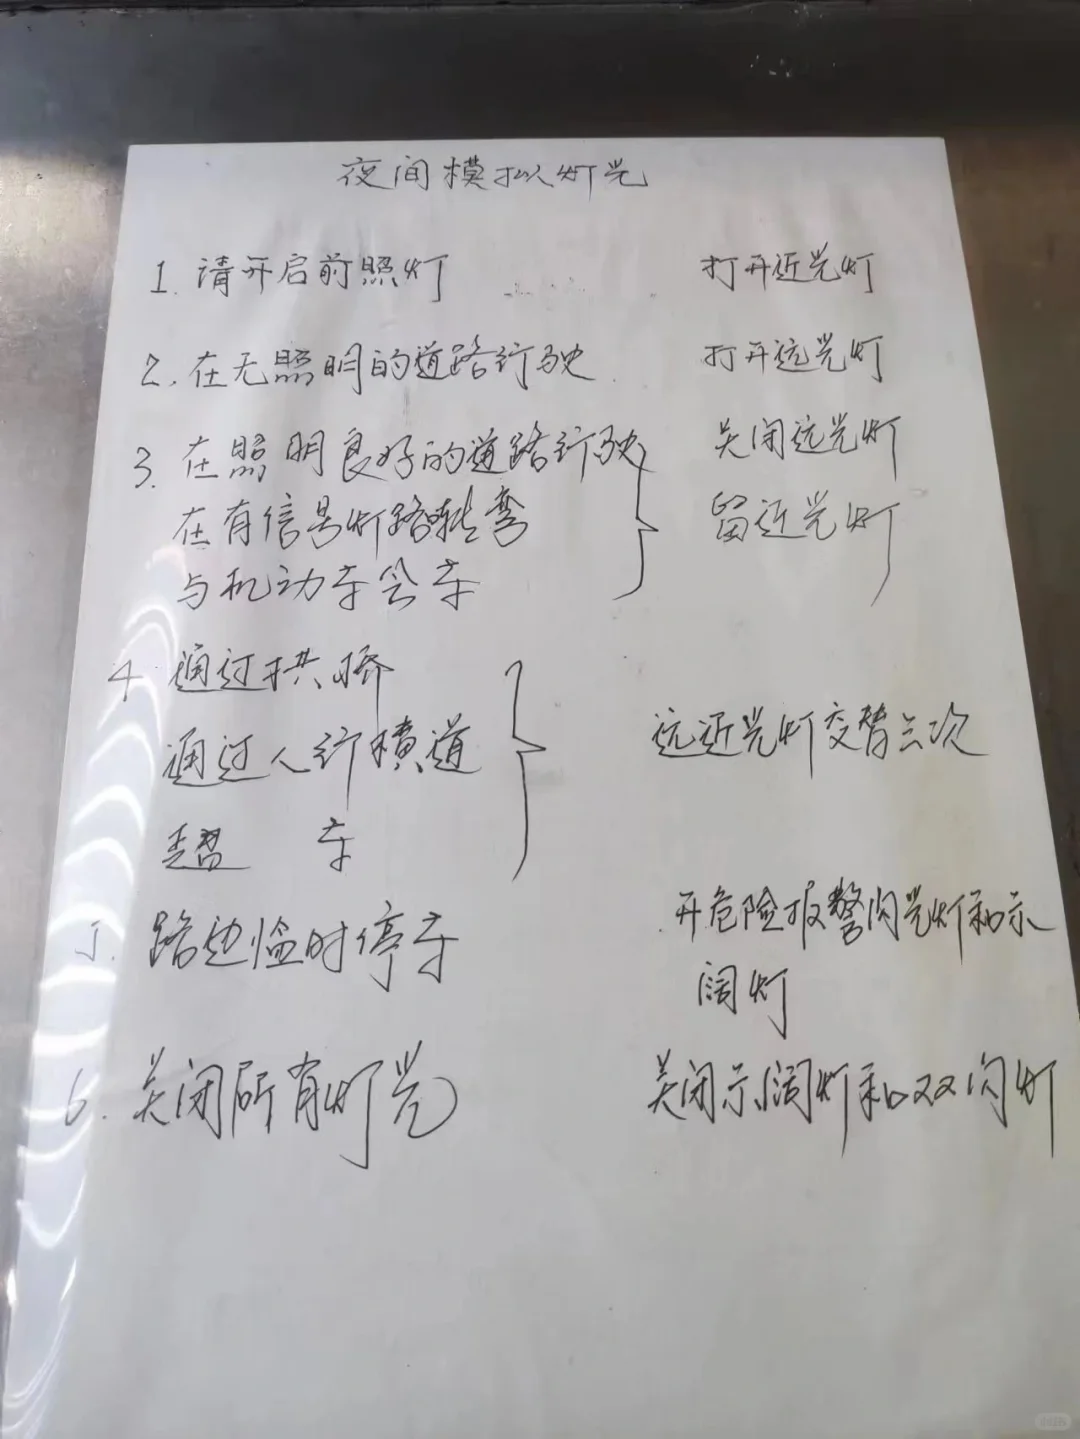 夜间模拟灯光
1. 请开启前照灯 打开近光灯
2. 在无照明的道路行驶 打开远光灯
3. 在照明良好的道路行驶 关闭远光灯
在有信号灯路转弯 留近光灯
与机动车会车
4 通过拱桥
通过人行横道 远近光灯交替三次
超 车
5. 路边临时停车 开危险报警闪光灯和示
阔灯
6. 关闭所有灯光 关闭示阔灯和双闪灯